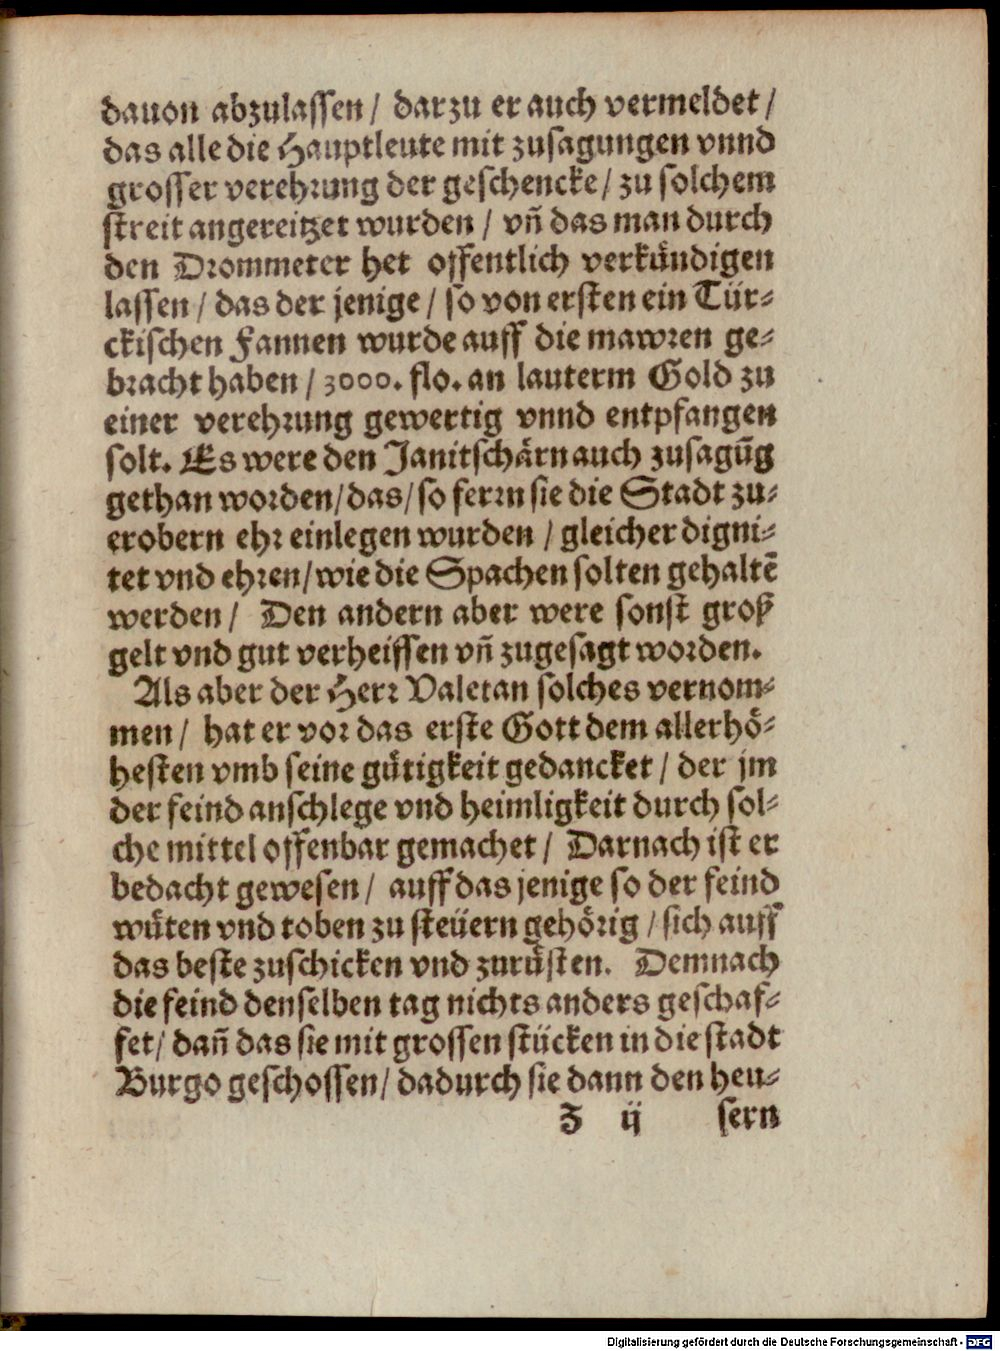 dauon abzulassen / darzu er auch vermeldet /
das alle die Hauptleute mit zusagungen vnnd
grosser verehrung der geschencke / zu solchem
streit angereitzet wurden / vn̄ das man durch
den Drommeter het offentlich verkündigen
lassen / das der jenige / so von ersten ein Tür-
ckischen Fannen wurde auff die mawren ge-
bracht haben / 3000. flo. an lauterm Gold zu
einer verehrung gewertig vnnd entpfangen
solt. Es were den Janitschärn auch zusagūg
gethan worden / das / so ferrn sie die Stadt zu-
erobern ehr einlegen wurden / gleicher digni-
tet vnd ehren / wie die Spachen solten gehaltē
werden / Den andern aber were sonst groß
gelt vnd gut verheissen vn̄ zugesagt worden.
Als aber der Herr Valetan solches vernom-
men / hat er vor das erste Gott dem allerhö-
hesten vmb seine gütigkeit gedancket / der jm
der feind anschlege vnd heimligkeit durch sol-
che mittel offenbar gemachet / Darnach ist er
bedacht gewesen / auff das jenige so der feind
wüten vnd toben zu steüern gehörig / sich auff
das beste zuschicken vnd zurüsten. Demnach
die feind denselben tag nichts anders geschaf-
fet / dan̄ das sie mit grossen stücken in die stadt
Burgo geschossen / dadurch sie dann den heu-
Z ij sern
Digitalisierung gefördert durch die Deutsche Forschungsgemeinschaft - DFG